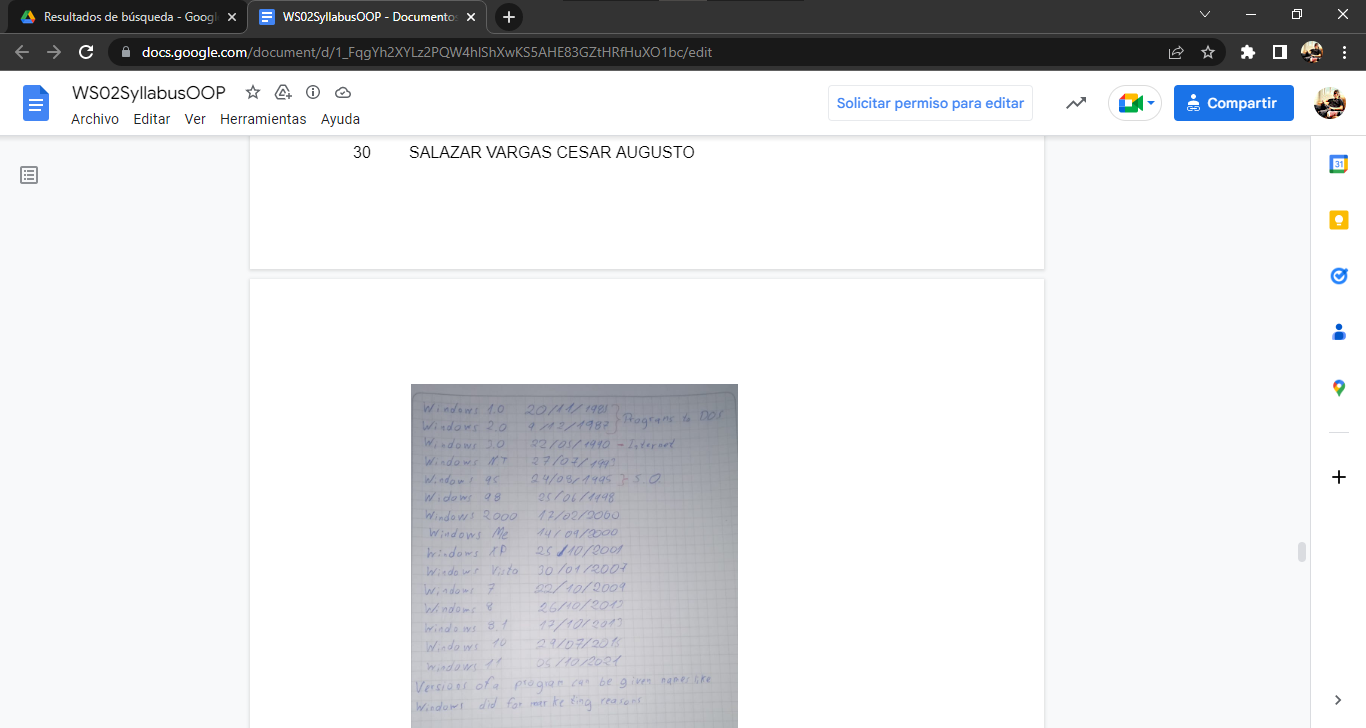 Resultados de búsqueda - Googl
WS02SyllabusOOP - Documentos
docs.google.com/document/d/1_FqgYh2XYLz2PQW4hIShXwKS5AHE83GZtHRfHuXO1bc/edit
WS02SyllabusOOP
Archivo Editar Ver Herramientas Ayuda
Solicitar permiso para editar
Compartir
31
30 SALAZAR VARGAS CESAR AUGUSTO
Windows 1.0 20/11/1985 } Programs to DOS
Windows 2.0 9/12/1987
Windows 3.0 22/05/1990 - Internet
Windows NT 27/07/1993
Windows 95 24/08/1995 } S.O.
Widows 98 25/06/1998
Windows 2000 17/02/2000
Windows Me 14/09/2000
Windows XP 25/10/2001
Windows Vista 30/01/2007
Windows 7 22/10/2009
Windows 8 26/10/2012
Windows 8.1 17/10/2013
Windows 10 29/07/2015
Windows 11 05/10/2021
Versions of a program can be given names like
Windows did for marketing reasons